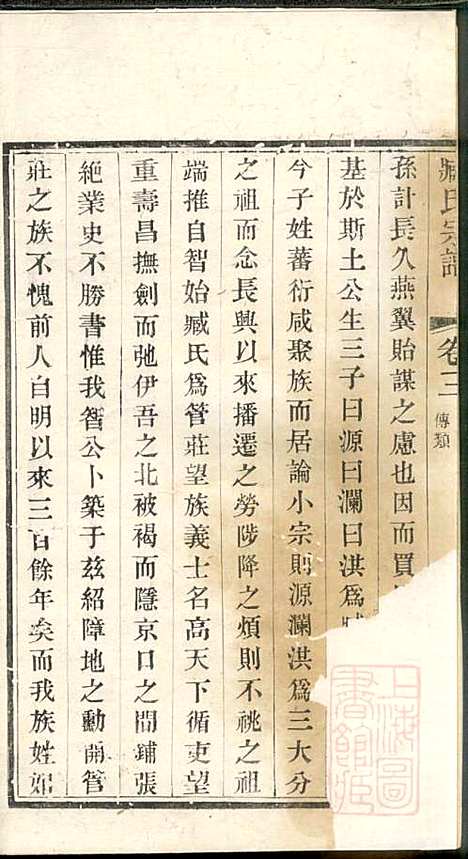 臧氏宗譜 卷三 傳類
孫計長久燕翼貽謀之慮也因而買
基於斯土公生三子曰源曰瀾曰淇爲
今子姓蕃衍咸聚族而居論小宗則源瀾淇爲三大分
之祖而念長興以來播遷之勞陟降之煩則不祧之祖
端推自智始臧氏爲管莊望族義士名高天下循吏望
重壽昌撫劍而弛伊吾之北被褐而隱京口之間鋪張
絶業史不勝書惟我智公卜築于兹紹障地之勳開管
莊之族不愧前人自明以來三百餘年矣而我族姓
上海圖書館藏